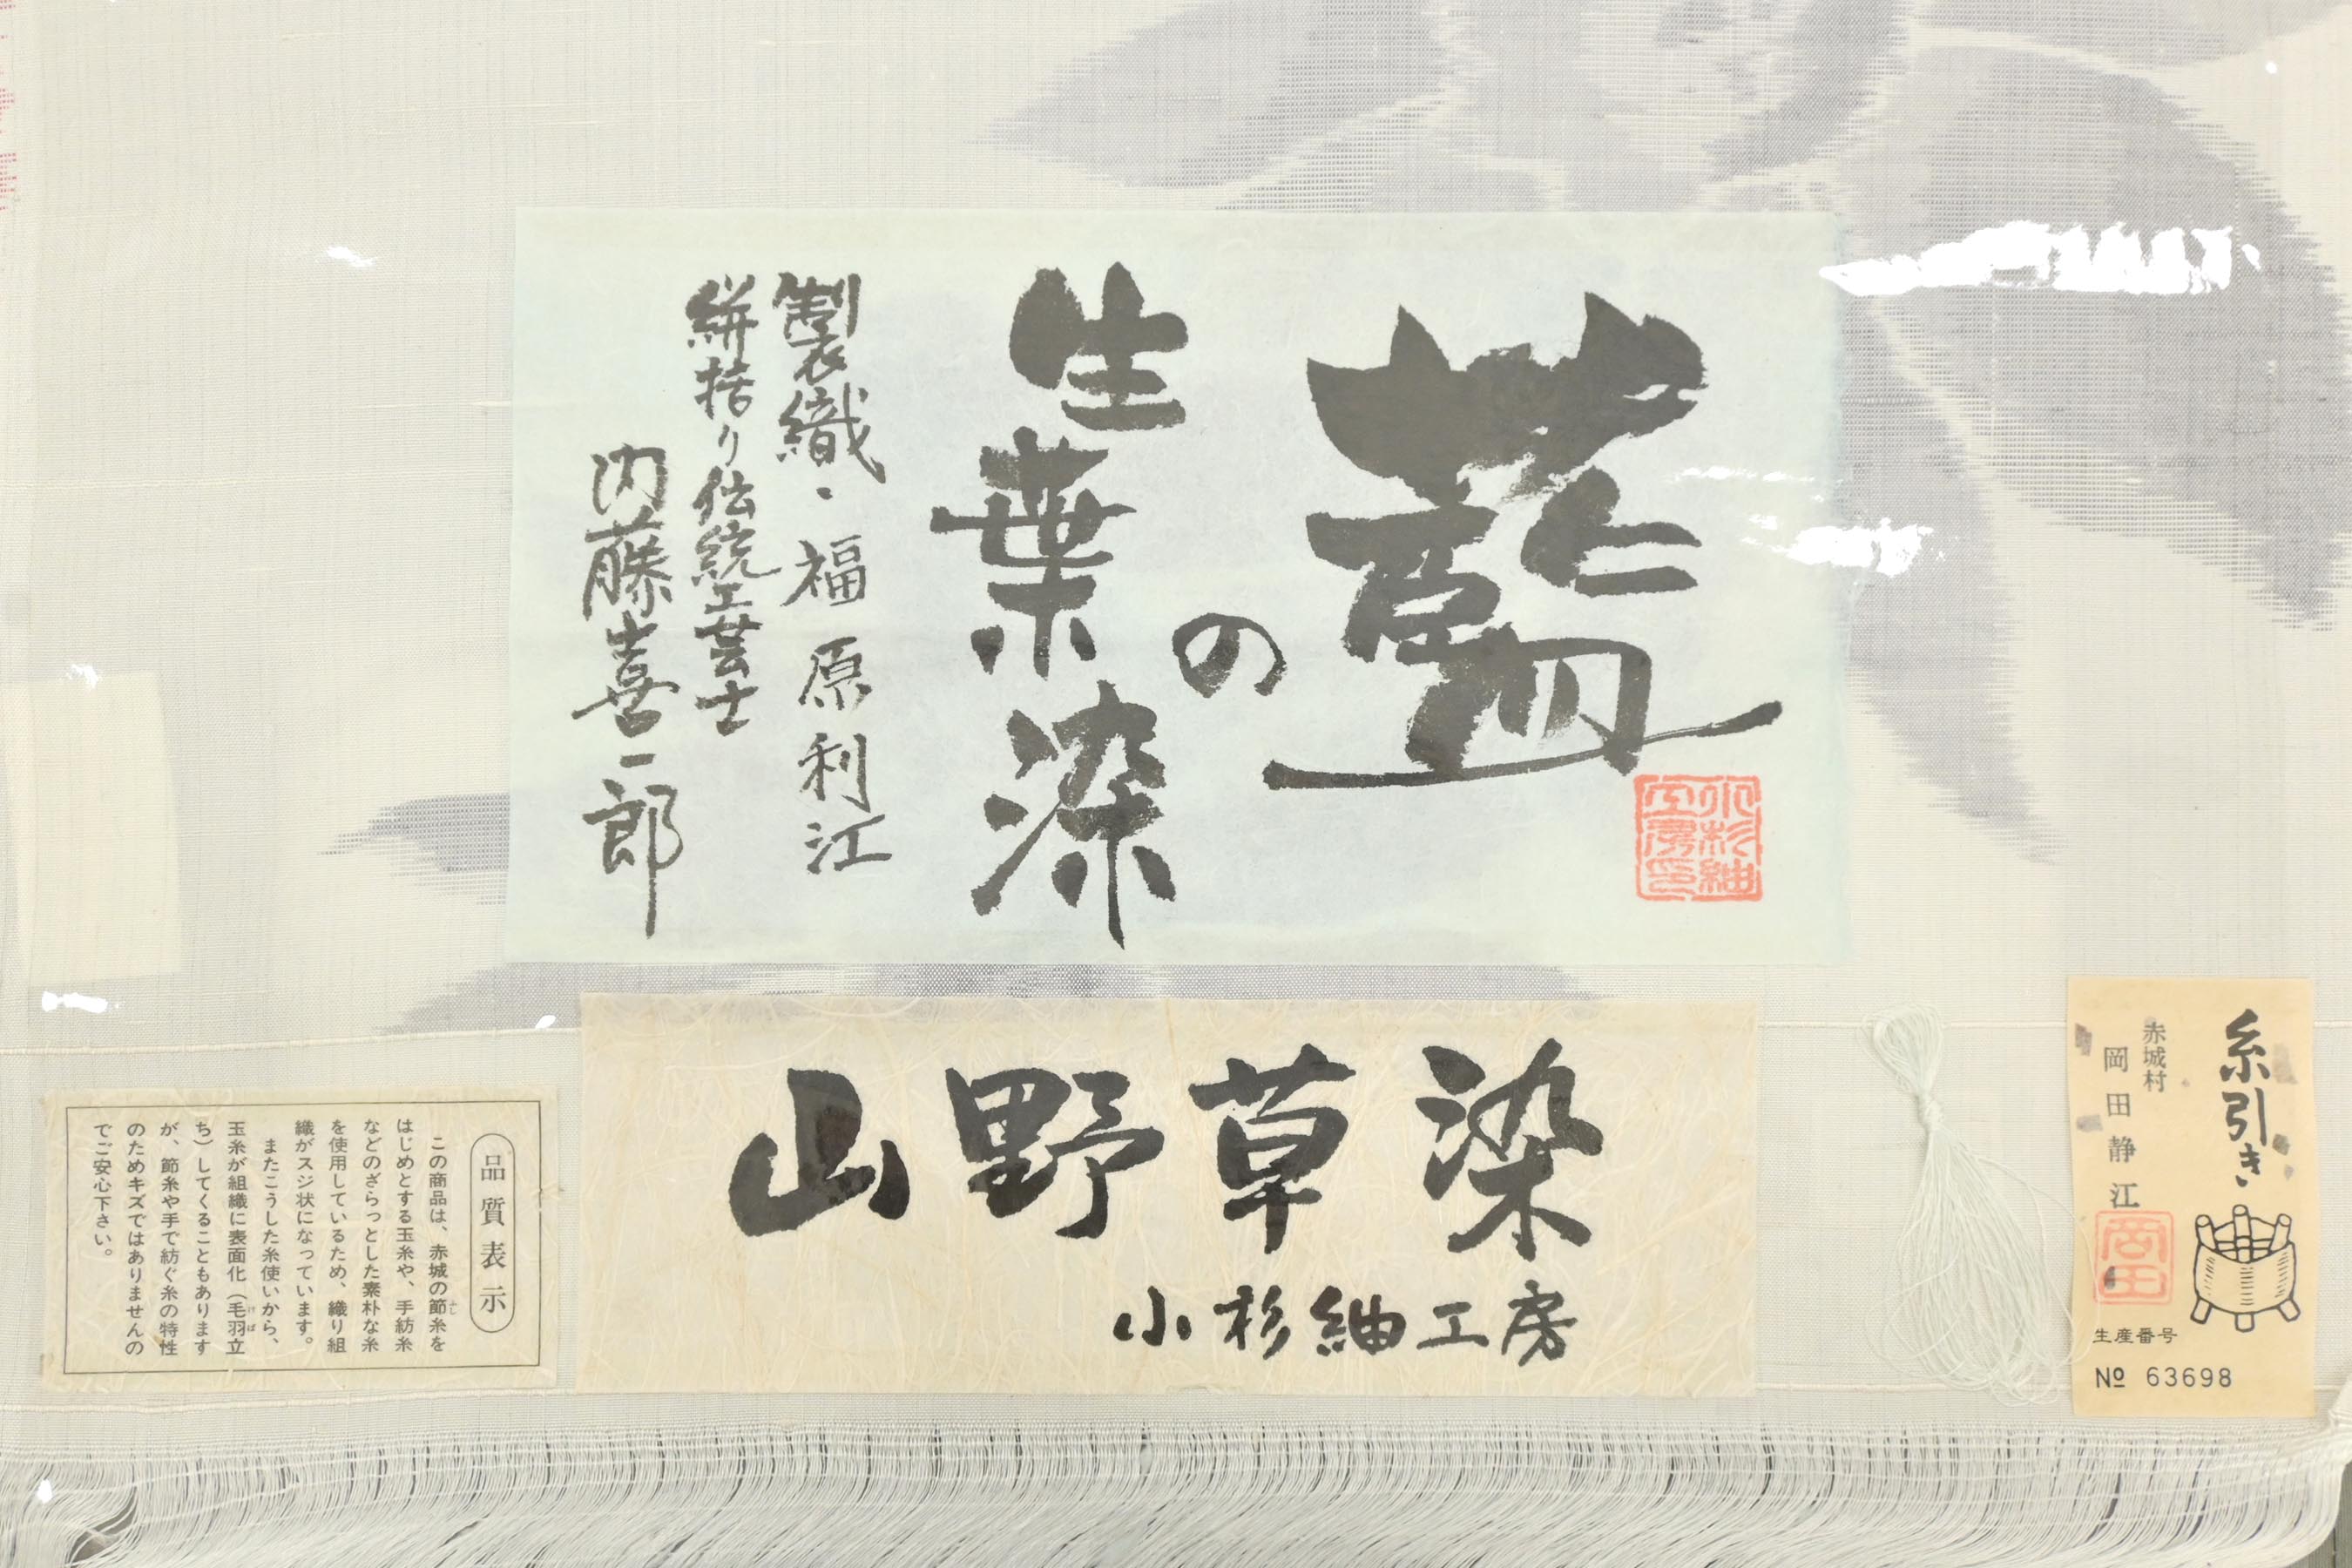 藍
の
生葉染
製織・福原利江
絣括り伝統工芸士
内藤喜一郎
小杉紬
工房印
山野草染
小杉紬工房
品質表示
この商品は、赤城の節糸を
はじめとする玉糸や、手紡糸
などのざらっとした素朴な糸
を使用しているため、織り組
織がスジ状になっています。
またこうした糸使いから、
玉糸が組織に表面化(毛羽立
ち)してくることもあります
が、節糸や手で紡ぐ糸の特性
のためキズではありませんの
でご安心下さい。
糸引き
赤城村
岡田静江
岡田
生産番号
№ 63698